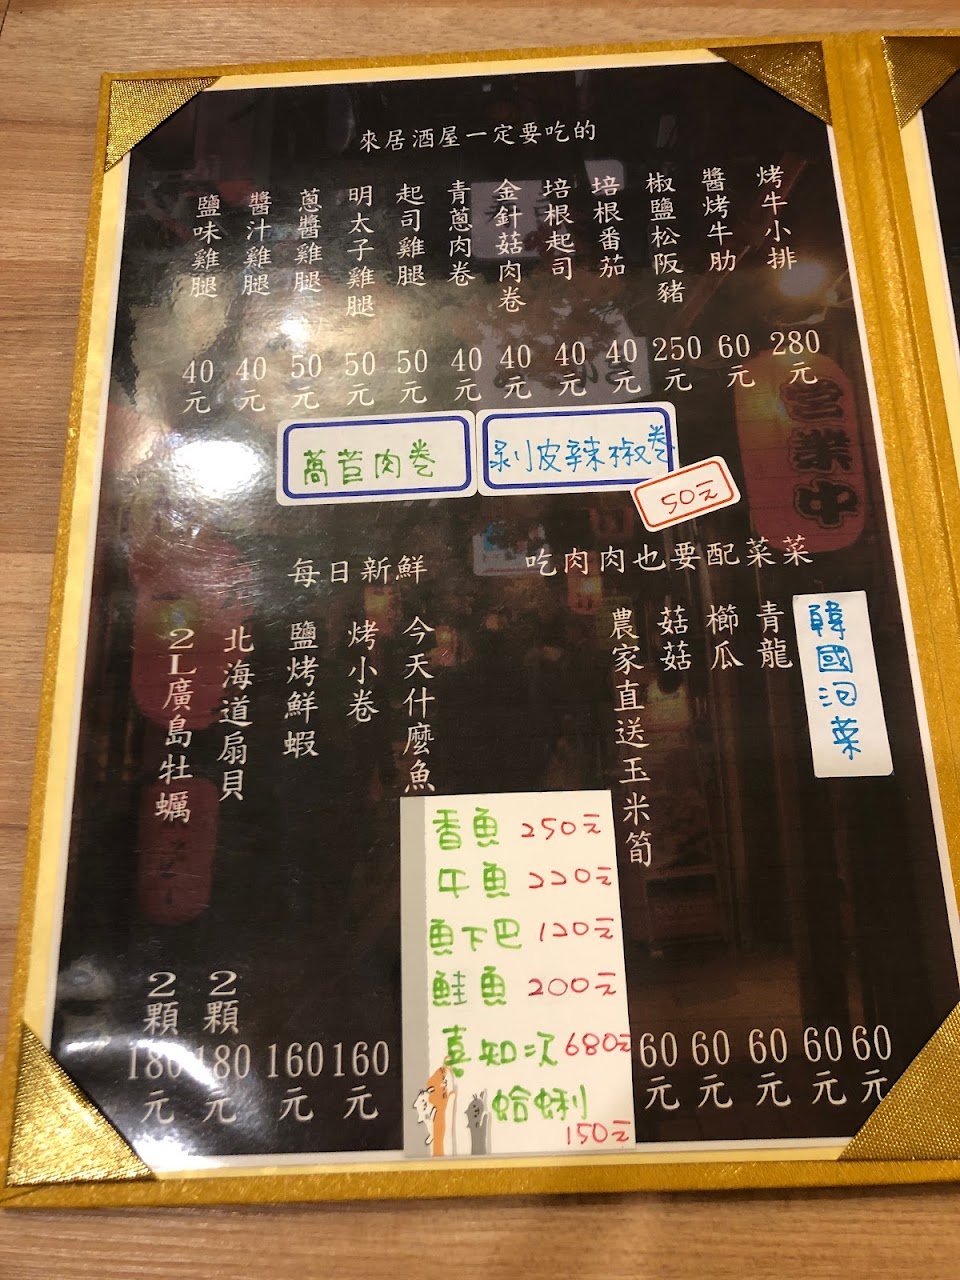 來居酒屋一定要吃的
烤牛小排
280元
醬烤牛肋
60元
椒鹽松阪豬
250元
培根番茄
40元
培根起司
40元
金針菇肉卷
40元
青蔥肉卷
40元
起司雞腿
50元
明太子雞腿
50元
蔥醬雞腿
50元
醬汁雞腿
40元
鹽味雞腿
40元
萵苣肉卷
剝皮辣椒卷
50元
營業中
吃肉肉也要配菜菜
韓國泡菜
60元
青龍
60元
櫛瓜
60元
菇菇
60元
農家直送玉米筍
60元
每日新鮮
今天什麼魚
香魚 250元
牛魚 220元
魚下巴 120元
鮭魚 200元
喜知次 680元
蛤蜊
150元
烤小卷
160元
鹽烤鮮蝦
160元
北海道扇貝
2顆
180元
2L廣島牡蠣
2顆
180元